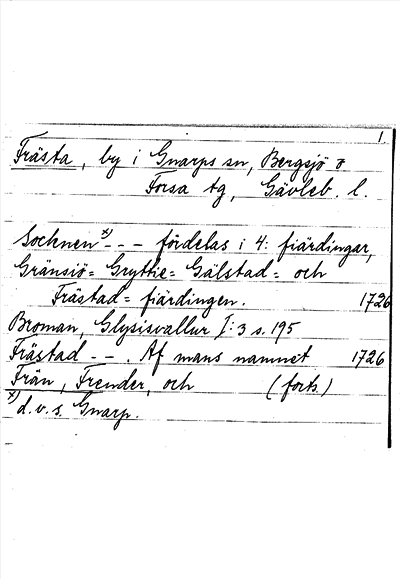 1.
Frästa, by i Gnarps sn, Bergsjö o
Forsa tg, Gävleb. l.
Sochnen x) - - - fördelas i 4: fiärdingar,
Gränsiö= Gryttie= Gälstad= och
Frästad= fiärdingen. 1726
Broman, Glysisvallur I:3 s. 195
Frästad - - . Af mans namnet 1726
Frän, Frender, och (forts.)
x) d.v.s. Gnarp.